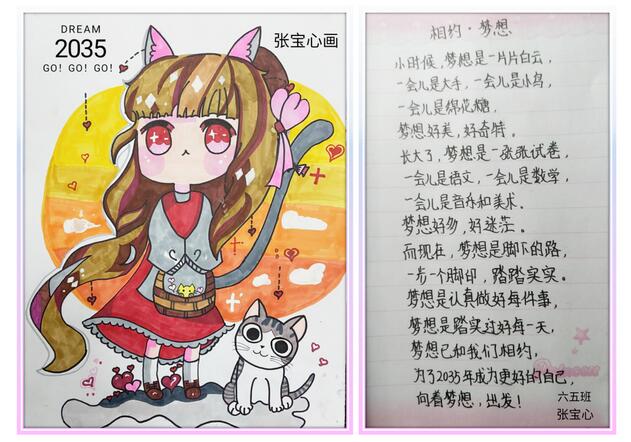 DREAM
2035
GO! GO! GO!
张宝心画
相约·梦想
小时候，梦想是一片片白云，
一会儿是大手，一会儿是小鸟，
一会儿是棉花糖，
梦想好美，好奇特。
长大了，梦想是一张张试卷，
一会儿是语文，一会儿是数学，
一会儿是音乐和美术。
梦想好多，好迷茫。
而现在，梦想是脚下的路，
一步一个脚印，踏踏实实。
梦想是认真做好每件事，
梦想是踏实过好每一天，
梦想已和我们相约，
为了2035年成为更好的自己，
向着梦想，出发！
六五班
张宝心